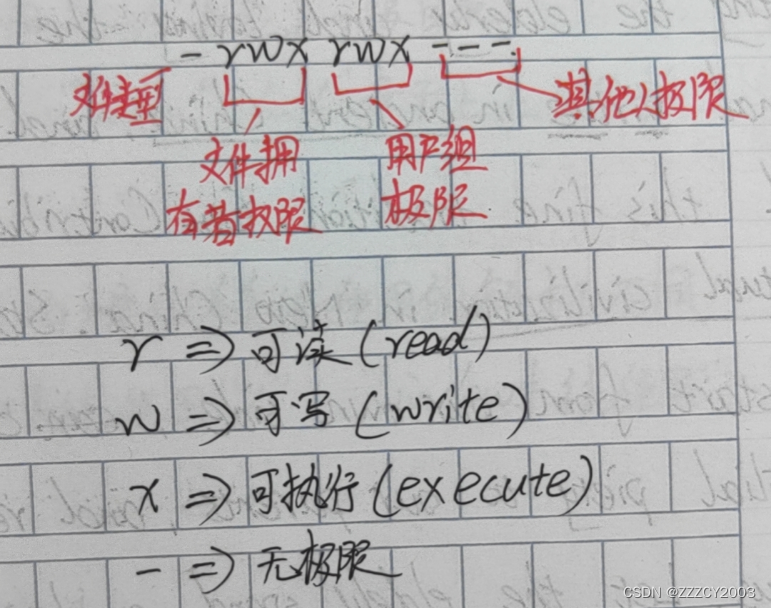 - rwx rwx ---
文件类型
其他人权限
文件拥
有者权限
用户组
权限
r => 可读(read)
w => 可写(write)
x => 可执行(execute)
- => 无权限
CSDN @ZZZCY2003